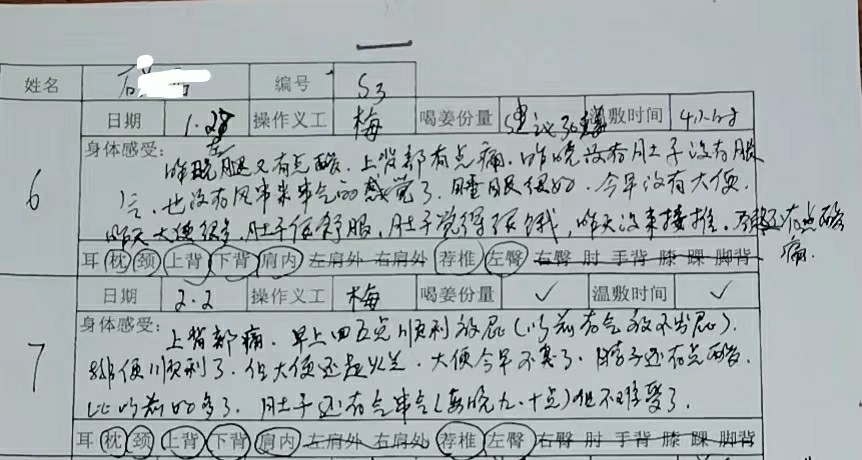 姓名 石 编号 S3
日期 1.28 操作义工 梅 喝姜份量 建议 温敷时间
6
身体感受:
昨晚左腿又有点酸。上背部有点痛。昨晚没有肚子没有胀
也没有风串来串去的感觉了。睡眠很好。今早没有大便。
昨天大便很多,肚子很舒服,肚子觉得很饿,昨天没来接推。还有点酸
痛。
耳 枕 颈 上背 下背 肩内 左肩外 右肩外 荐椎 左臀 右臀 肘 手背 膝 踝 脚背
日期 2.2 操作义工 梅 喝姜份量 ✓ 温敷时间 ✓
7
身体感受:
上背部痛。早上四五点顺利放屁(以前有气放不出屁)。
排便顺利了。但大便还是粘。大便今早不臭了。脖子还有点酸。
比以前好多了。肚子还有气串气(每晚九、十点)但不难受了。
耳 枕 颈 上背 下背 肩内 左肩外 右肩外 荐椎 左臀 右臀 肘 手背 膝 踝 脚背